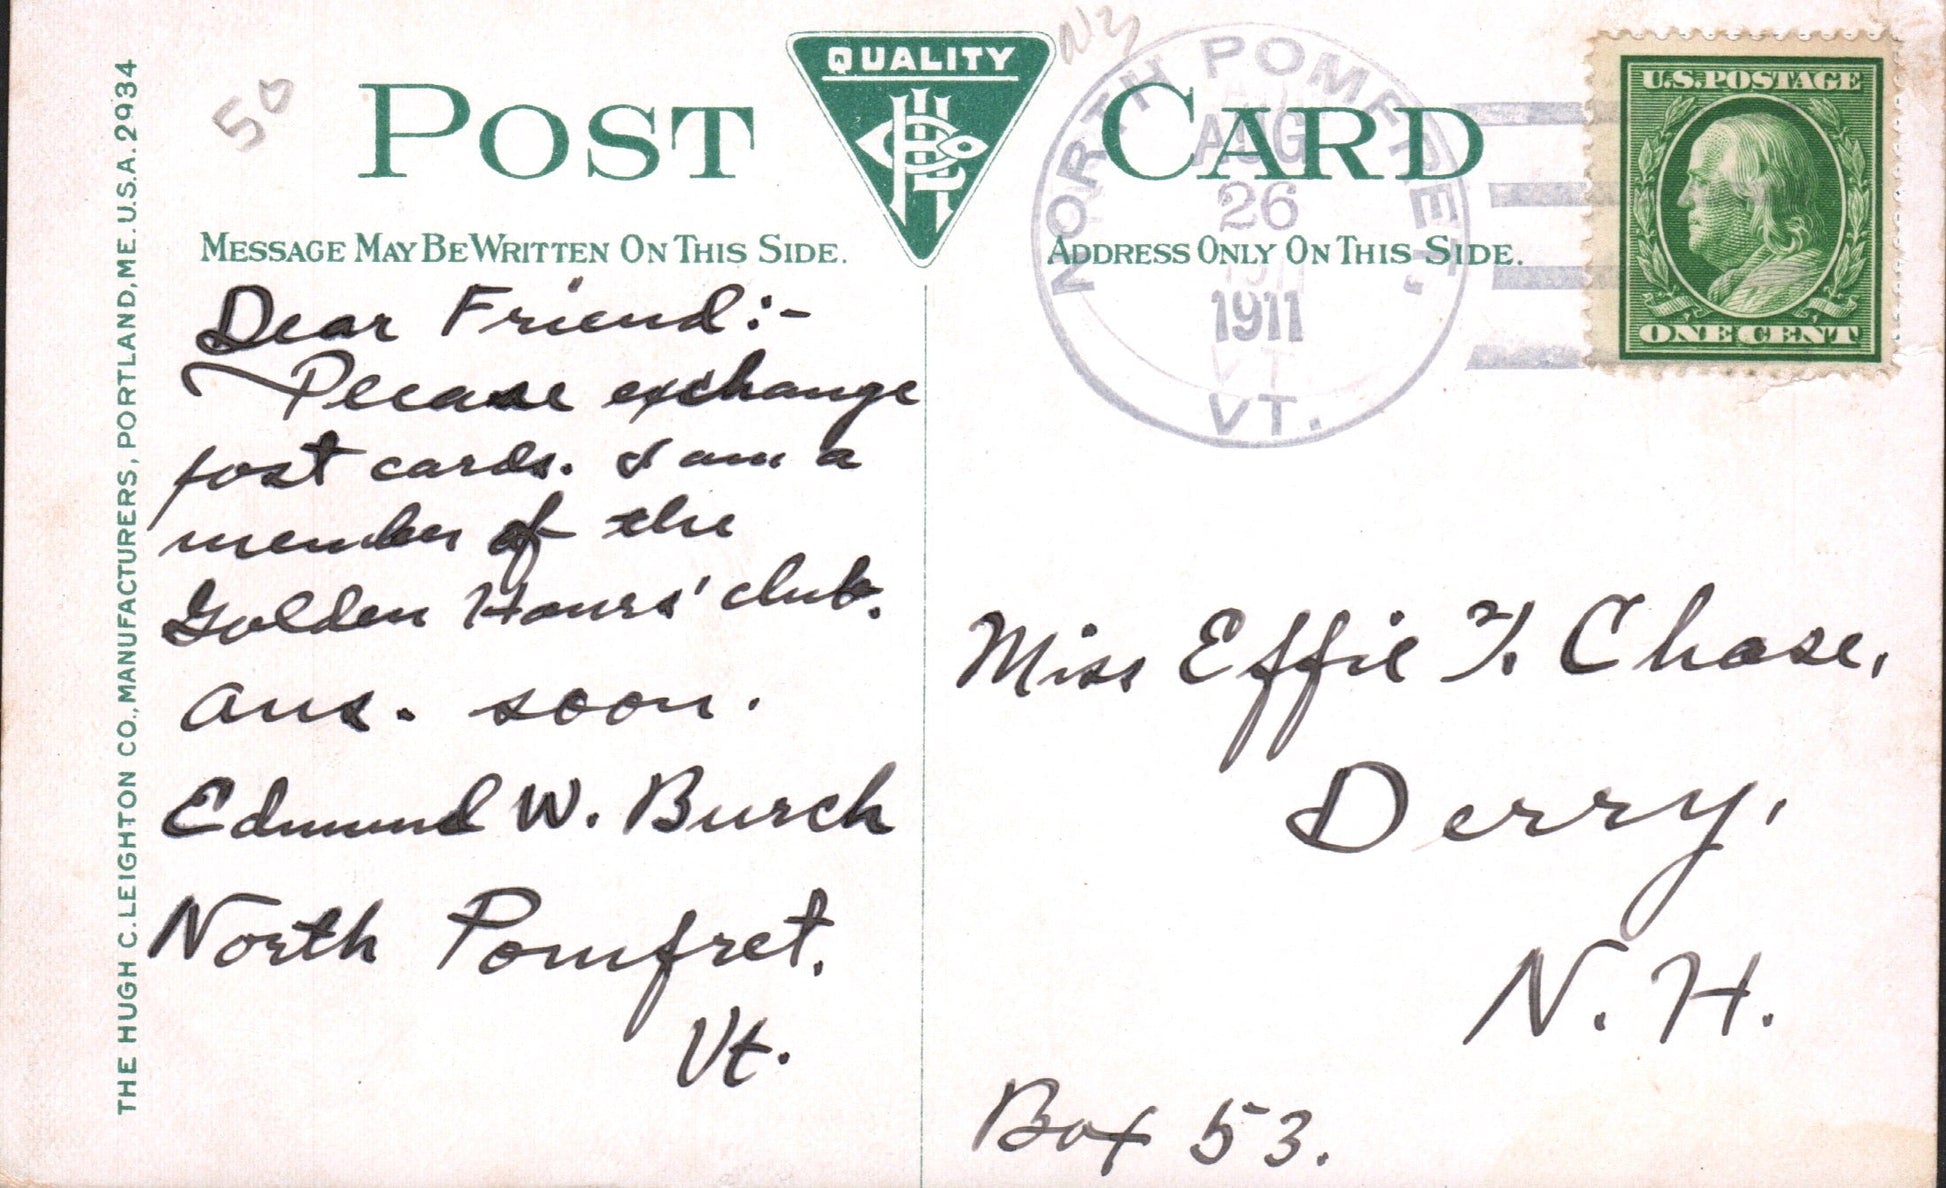 50
POST CARD
QUALITY
NY
NORTH POMFRET,
AUG
26
1911
VT.
U.S. POSTAGE
ONE CENT
MESSAGE MAY BE WRITTEN ON THIS SIDE.
ADDRESS ONLY ON THIS SIDE.
THE HUGH C. LEIGHTON CO., MANUFACTURERS, PORTLAND, ME. U.S.A. 2934
Dear Friend:-
Please exchange
post cards. I am a
member of the
Golden Hours' club.
ans. soon.
Edmund W. Burch
North Pomfret,
Vt.
Miss Effie F. Chase,
Derry,
N. H.
Box 53.